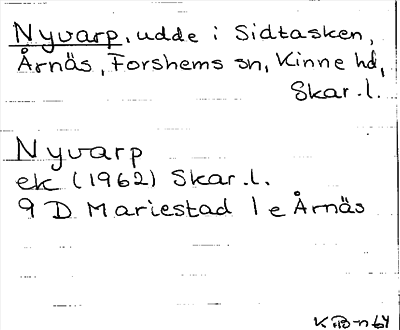 Nyvarp, udde i Sidtasken,
Årnäs, Forshems sn, Kinne hd,
Skar. l.
Nyvarp
ek (1962) Skar. l.
9 D Mariestad 1 e Årnäs